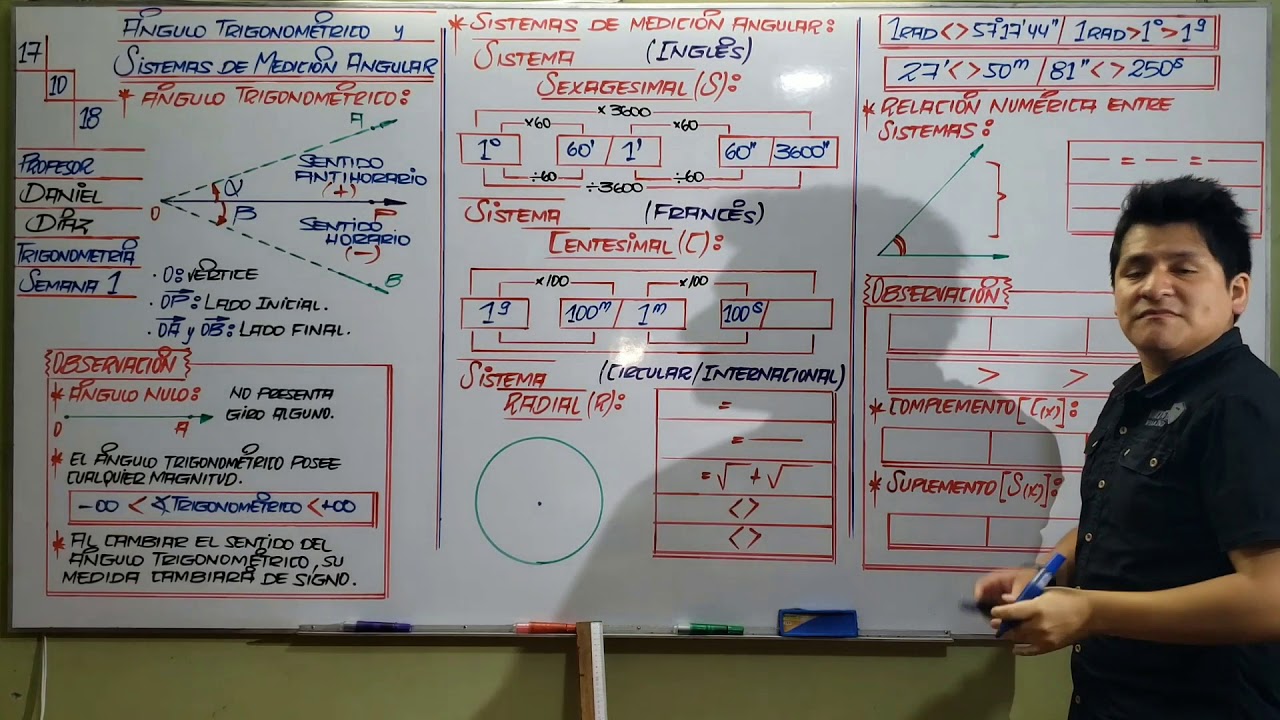 17
10
18
PROFESOR
DANIEL
DÍAZ
TRIGONOMETRÍA
SEMANA 1
ÁNGULO TRIGONOMÉTRICO y
SISTEMAS DE MEDICIÓN ANGULAR
* ÁNGULO TRIGONOMÉTRICO:
A
SENTIDO
ANTIHORARIO
(+)
α
O
P
β
SENTIDO
HORARIO
(-)
B
· O: VÉRTICE
· OP: LADO INICIAL.
· OA y OB: LADO FINAL.
OBSERVACIÓN
* ÁNGULO NULO:
NO PRESENTA
GIRO ALGUNO.
O A
* EL ÁNGULO TRIGONOMÉTRICO POSEE
CUALQUIER MAGNITUD.
-∞ < ∡ TRIGONOMÉTRICO < +∞
* AL CAMBIAR EL SENTIDO DEL
ÁNGULO TRIGONOMÉTRICO, SU
MEDIDA CAMBIARÁ DE SIGNO.
* SISTEMAS DE MEDICIÓN ANGULAR:
SISTEMA (INGLÉS)
SEXAGESIMAL (S):
×3600
×60 ×60
1° 60' / 1' 60" / 3600"
÷60 ÷60
÷3600
SISTEMA (FRANCÉS)
CENTESIMAL (C):
×100 ×100
1g 100m / 1m 100s /
SISTEMA (CIRCULAR/INTERNACIONAL)
RADIAL (R):
=
= —
= √ + √
<>
<>
1RAD <> 57°17'44" / 1RAD > 1° > 1g
27' <> 50m / 81" <> 250s
* RELACIÓN NUMÉRICA ENTRE
SISTEMAS:
— = — = —
OBSERVACIÓN
> >
* COMPLEMENTO [C(x)]:
* SUPLEMENTO [S(x)]: